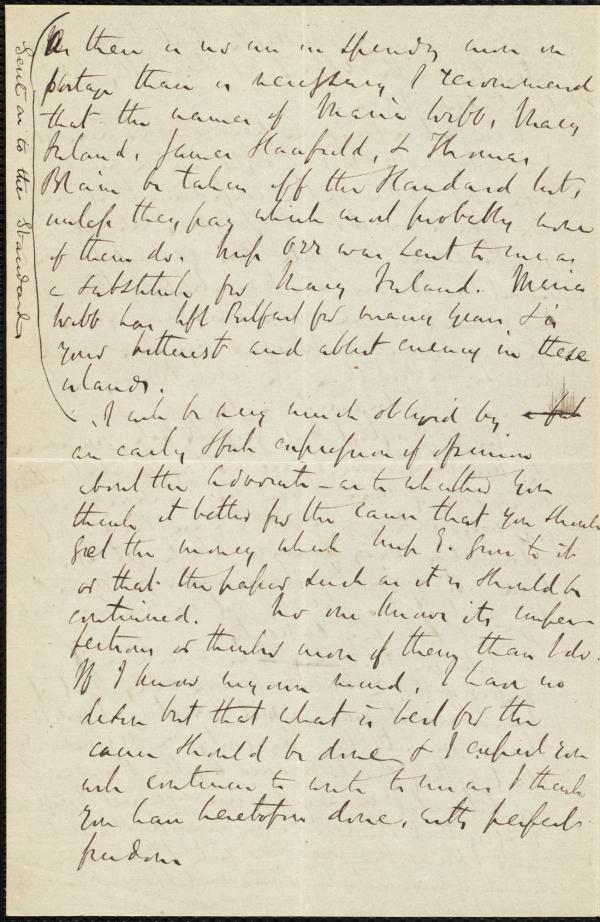 As there is no use in spending more in
postage than is necessary I recommend
that the names of Maria Webb, Mary
Ireland, James Standfield, & Thomas
Blain be taken off the Standard list,
unless they pay which most probably none
of them do. Miss Orr was sent to me as
a substitute for Mary Ireland. Maria
Webb has left Belfast for many years & is
your bitterest and ablest enemy in these
islands.
I will be very much obliged by
an early & full expression of opinion
about the Advocate – as to whether you
think it better for the cause that you should
get the money which Miss E. gives to it
or that the paper such as it is should be
continued. No one knows its imper-
fections or thinks more of them than I do.
If I know my own mind, I have no
desire but that what is best for the
cause should be done & I expect you
will continue to write to me as I think
you have heretofore done, with perfect
freedom
Sent on to the Standard